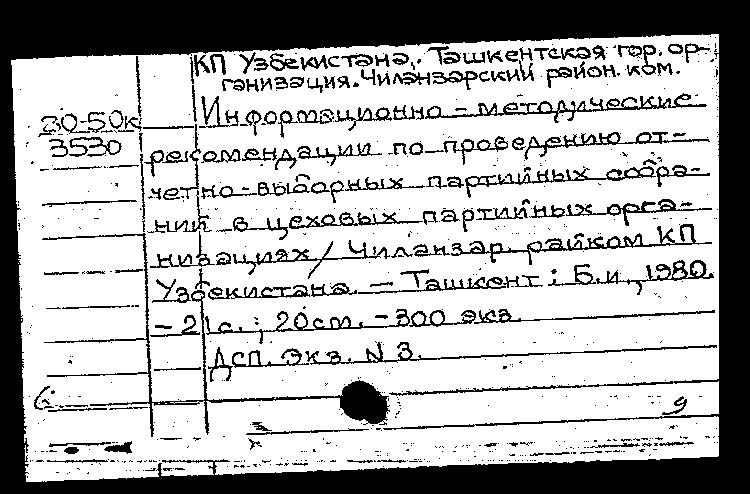 КП Узбекистана. Ташкентская гор. ор-
ганизация. Чиланзарский район. ком.
80-50к
3530
Информационно-методические
рекомендации по проведению от-
четно-выборных партийных собра-
ний в цеховых партийных орга-
низациях / Чиланзар. райком КП
Узбекистана. — Ташкент : Б.и., 1980.
- 21с. ; 20см. - 300 экз.
Дсп. Экз. N 3.
9